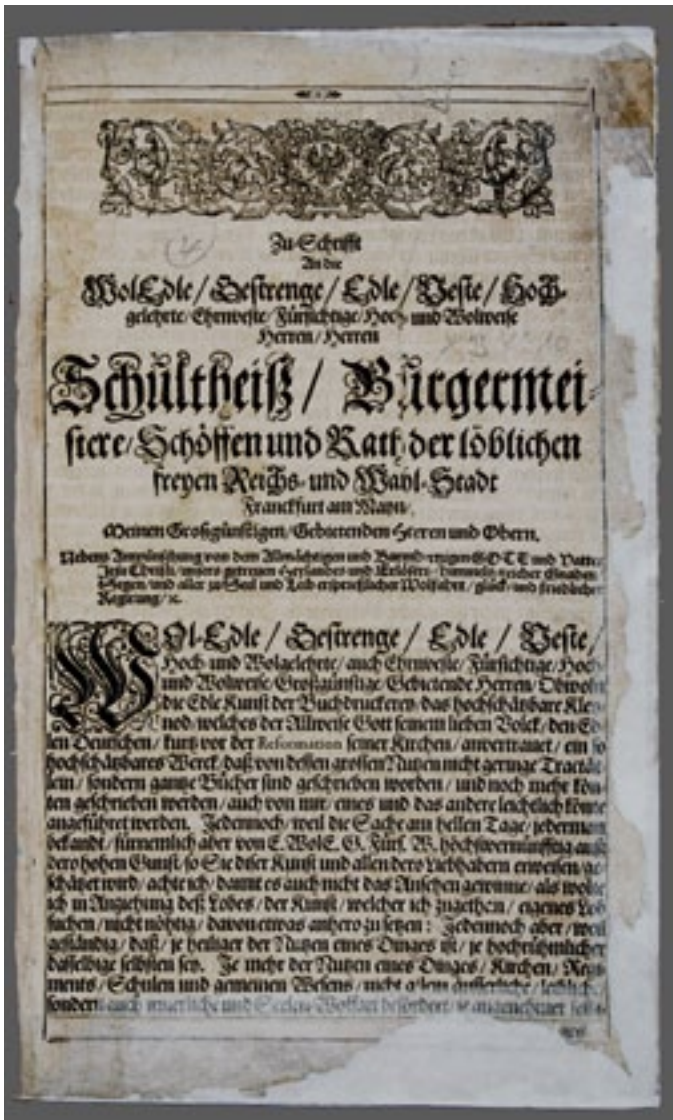 Zu-Schrifft
An die
WolEdle / Gestrenge / Edle / Veste / Hoch-
gelehrte / Ehrnveste / Fürsichtige / Hoch- und Wolweise
Herren / Herren
Schultheiß / Bürgermei-
stere / Schöffen und Rath der löblichen
freyen Reichs- und Wahl-Stadt
Franckfurt am Mayn /
Meinen Großgünstigen / Gebietenden Herren und Obern.
Nebens Anwünschung von dem Allmächtigen und Barmhertzigen GOTT und Vatter
Jesu Christi / unsers getreuen Heylandes und Erlösers / himmels-reicher Gnaden
Segen / und aller zu Seel und Leib ersprießlicher Wolfahrt / glück- und friedlicher
Regirung / ꝛc.
WOl-Edle / Gestrenge / Edle / Veste /
Hoch und Wolgelehrte / auch Ehrnveste / Fürsichtige / Hoch-
und Wolweise / Großgünstige / Gebietende Herren / Obwohl
die Edle Kunst der Buchdruckerey / das hochschätzbare Kley-
nod / welches der Allweise Gott seinem lieben Volck / den Ed-
len Deutschen / kurtz vor der Reformation seiner Kirchen / anvertrauet / ein so
hochschätzbares Werck / daß von dessen grossen Nutzen nicht geringe Tractät-
lein / sondern gantze Bücher sind geschrieben worden / und noch mehr kön-
ten geschrieben werden / auch von mir / eines und das andere leichtlich könte
angeführet werden. Jedennoch / weil die Sache am hellen Tage / jederman
bekandt / fürnemlich aber von E. WolE. G. Fürs. W. hochvernünfftig auß
dero hohen Gunst / so Sie diser Kunst und allen ders Liebhabern erweisen / ge-
schätzet wird / achte ich / damit es auch nicht das Ansehen gewinne / als wolte
ich in Anziehung deß Lobes / der Kunst / welcher ich zugethan / eigenes Lob
suchen / nicht nöhtig / davon etwas anhero zu setzen : Jedennoch aber / weil
geständig / daß / je heiliger der Nutzen eines Dinges ist / je hochrühmlicher
dasselbige selbsten sey. Je mehr der Nutzen eines Dinges / Kirchen / Regi-
ments / Schulen und gemeinen Wesens / nicht allein äusserliche / leibliche /
sondern auch innerliche und Seelen-Wolfart befördert / je angenehmer